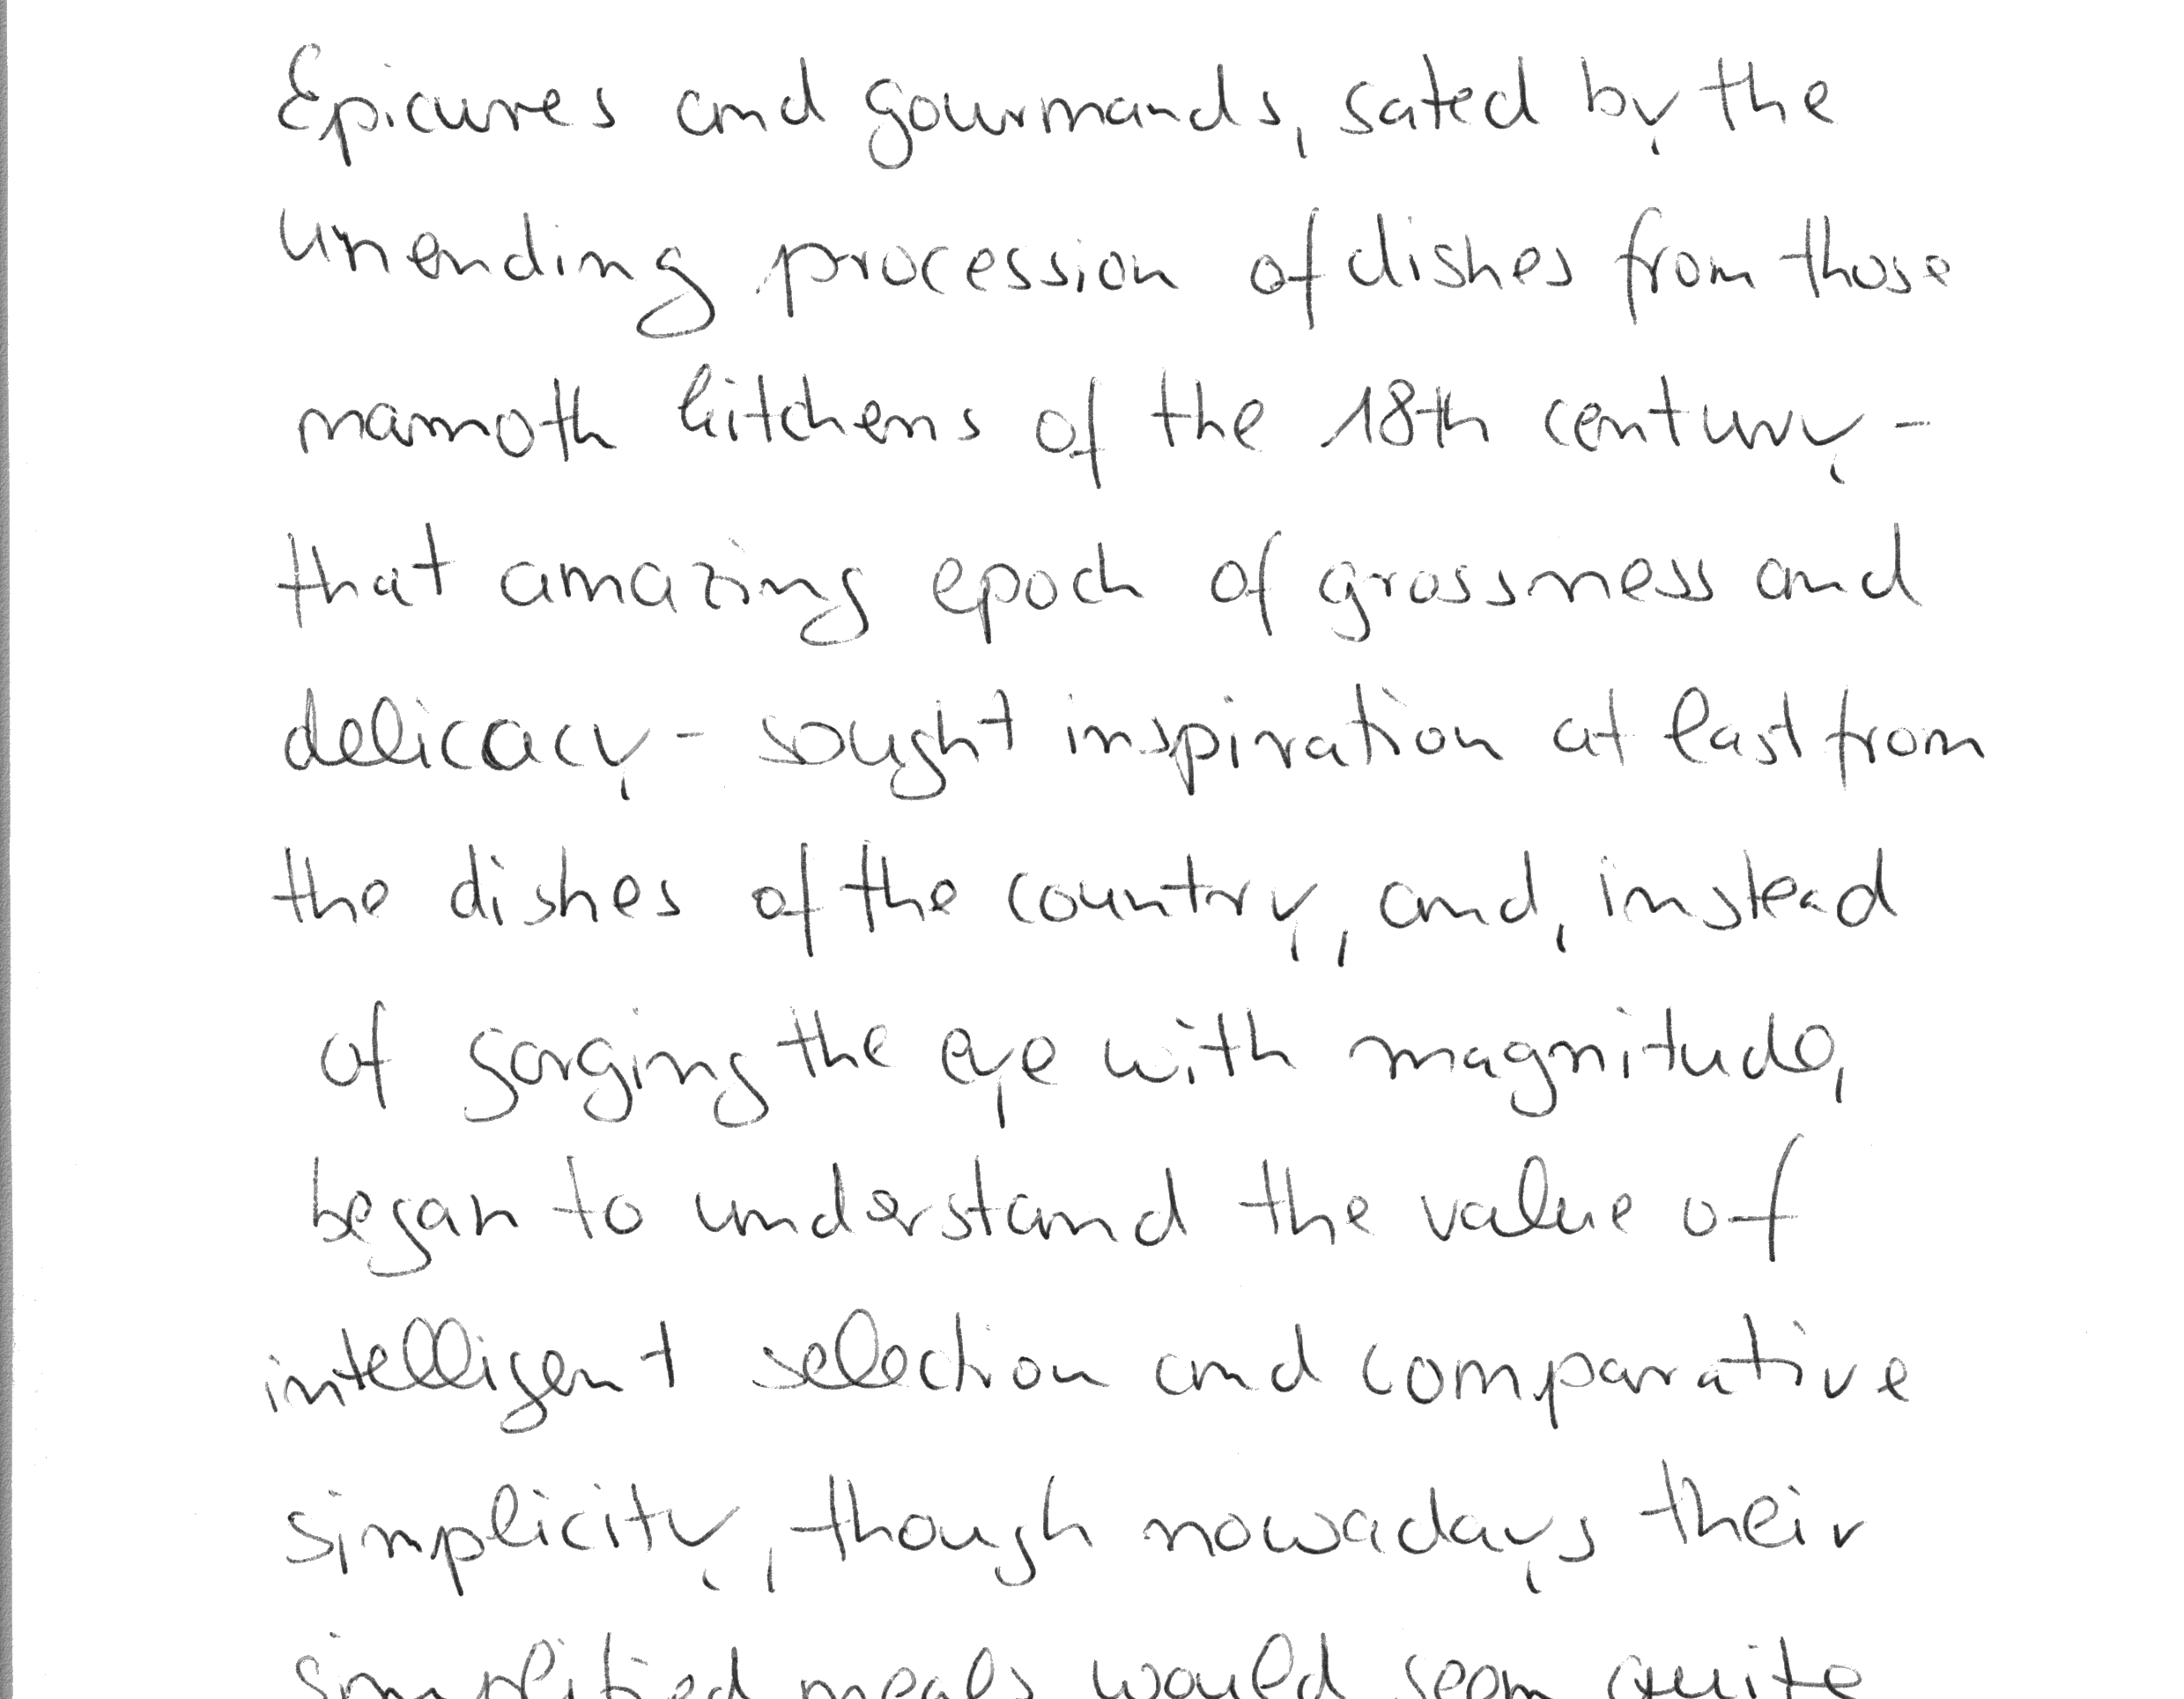 Epicures and gourmands, sated by the
unending procession of dishes from those
mammoth kitchens of the 18th century -
that amazing epoch of grossness and
delicacy - sought inspiration at last from
the dishes of the country, and, instead
of gorging the eye with magnitude,
began to understand the value of
intelligent selection and comparative
simplicity, though nowadays their
simplified meals would seem quite